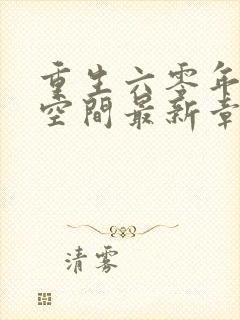 重生六零年
空間最新章
清雾